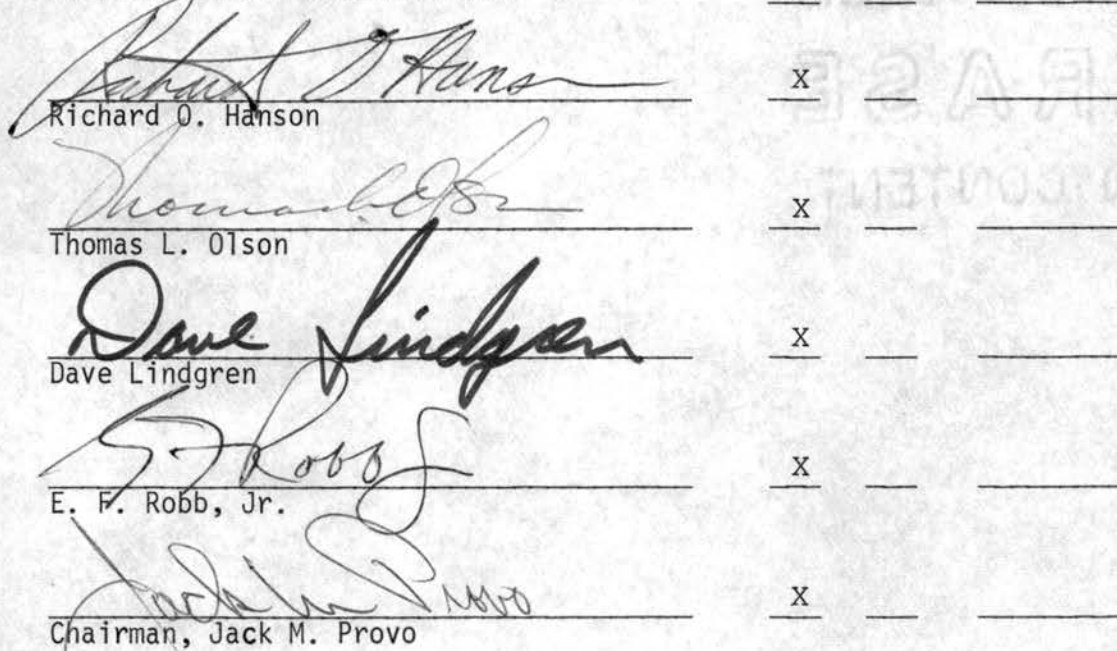 Richard O Hanson X
Richard O. Hanson
Thomas L. Olson X
Thomas L. Olson
Dave Lindgren X
Dave Lindgren
E F Robb Jr X
E. F. Robb, Jr.
Jack M Provo X
Chairman, Jack M. Provo